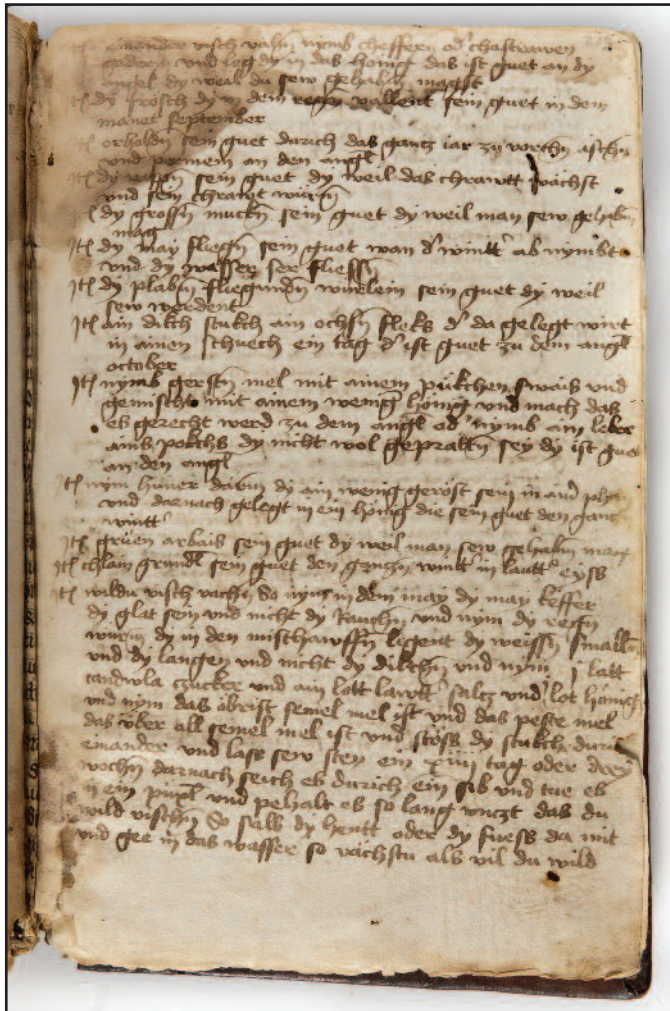 Itm einander visch vahn nymb cheffern od' chastrawen
gederm und leg dy in das honig das ist guet an dy
angel dy weil du sew gehabn magst
Itm dy frosch dy in dem regn vallent sein guet in dem
manet September
Itm orholdn sein guet durich das gantz iar zu vorchn aschn
und permem an den angl
Itm dy rappn sein guet dy weil das chrawtt wachst
und sein chrawt würm
Itm dy grossn muckn sein guet dy weil man sew gehabn
mag
Itm dy may fliegn sein guet wan d' wintt' ab nymbt
und dy wasser ser fliessn
Itm dy plabn fliegundn würmlein sein guet dy weil
sew werdent
Itm ain dikch stukch ain ochsn fleks d' da gelegt wirt
in ainen schuech ein tag d' ist guet zu dem angl
october
Itm nymb gerstn mel mit ainem pükchen swais und
gemischt mit ainem wenig honig und mach das
es gerecht werd zu dem angl od' nymb ain leber
ains pokchs dy nicht wol gepratn sey dy ist guet
an den angl
Itm nym huner darm dy ain wenig geröst sein in ainer
und darnach gelegt in ein honig die sein guet den gantz
wintt'
Itm gruen arbais sein guet dy weil man sew gehabn mag
Itm chlain grundl sein guet den gantzn wintt' in lautt' eyss
Itm wildu visch vachn So nym in dem may dy may keffer
dy glat sein und nicht dy Rauchn und nym dy regn
würm dy in den misthawffn ligent dy weissn smalln
und dy langen und nicht dy dikchn und nym j latt
candwla zucker und ain lott lawtt' saltz und lot honig
und nym das obrist semel mel ist und das peste mel
das über all semel mel ist und stoss dy stukch durch
einander und lass sew sten ein xiiii tag oder drey
wochn darnach seich es durich ein sib und tue es
in ein püxl und pehalt es so lang unczt das du
wild vischn So salb dy hentt oder dy fuess da mit
und gee in das wasser so vachstu als vil du wild